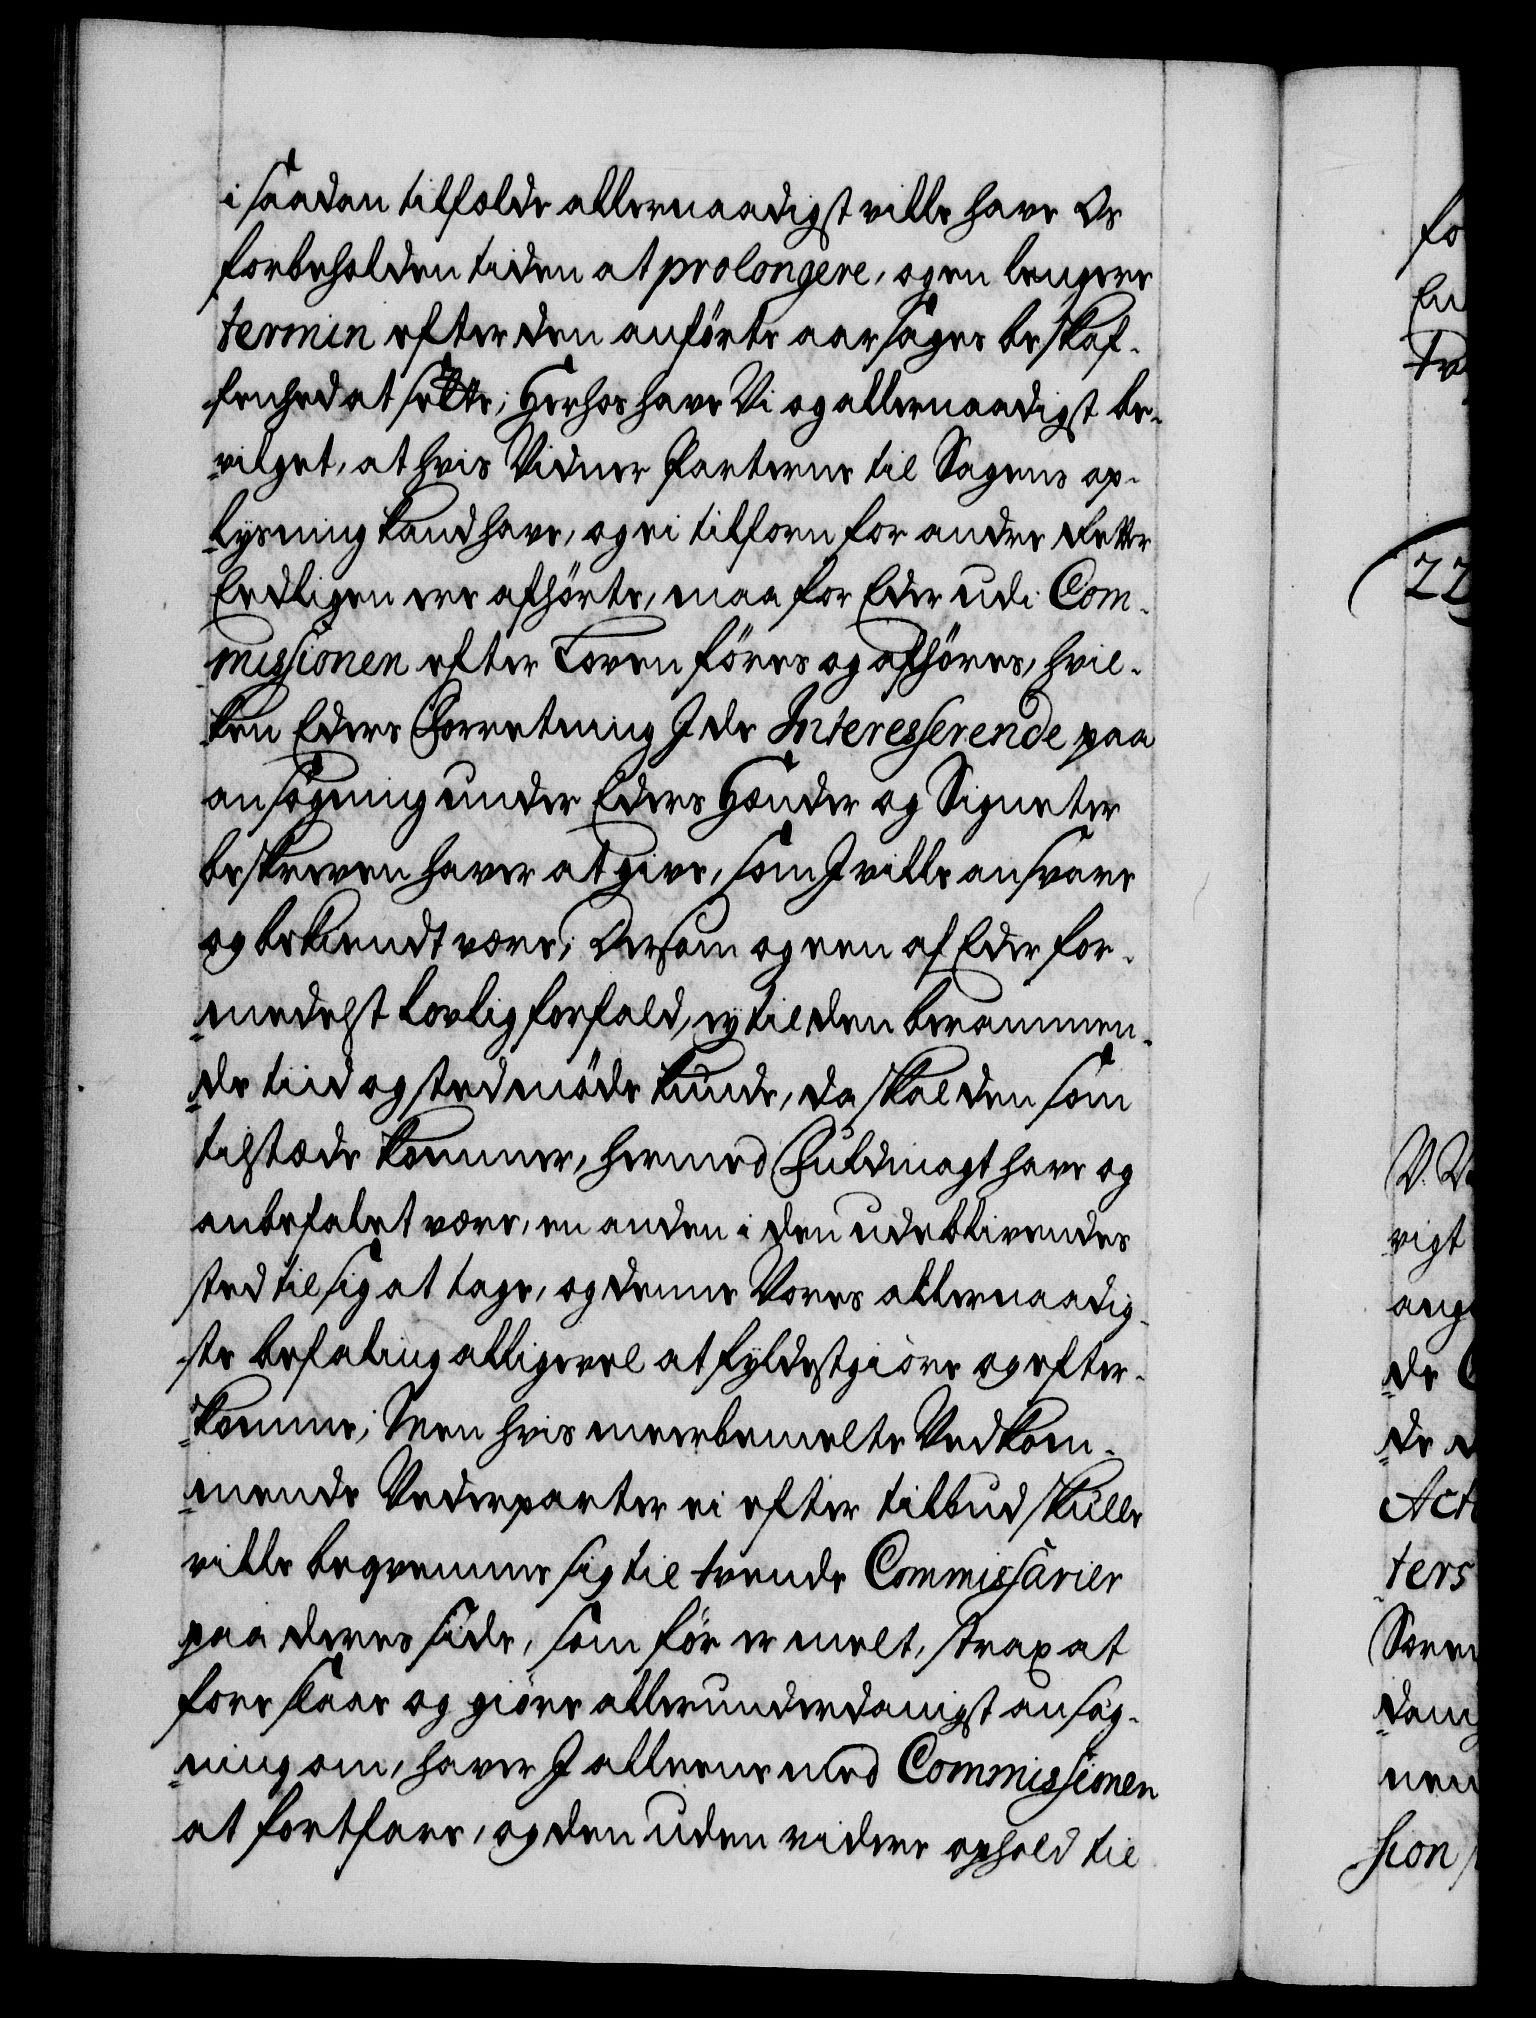 i saadan tilfælde allernaadigst ville have Os
forbeholden tiden at prolongere, og en lengere
termin efter den anførte aarsages beskaf-
fenhed at sette; Herhos have Vi og allernaadigst be-
vilget, at hvis Vidner Parterne til Sagens op-
lysning kand have, og ei tilforn for andre Retter
Eedligen ere afhørte, maa for Eder udi Com-
missionen efter Loven føres og afhøres, hvil-
ken Eders Forretning I de Interesserende paa
ansøgning under Eders Hænder og Signeter
beskreven haver at give, som I ville ansvare
og bekiendt være; Dersom og een af Eder for-
medelst lovlig forfald, ey til den berammen-
de tiid og sted møde kunde, da skal den som
tilstæde kommer, hermed Fuldmagt have og
anbefalet være, en anden i den udeblivendes
sted til sig at tage, og denne Vores allernaadig-
ste befaling alligevel at fyldestgiøre og efter-
komme; Men hvis meerbemelte Vedkom-
mende Vederparter ei efter tilbud skulle
ville beqvemme sig til tvende Commissarier
paa deres side, som før er melt, strax at
foreslaae og giøre allerunderdanigst ansøg-
ning om, haver I alleene med Commissionen
at fortfare, og den uden videre ophold til